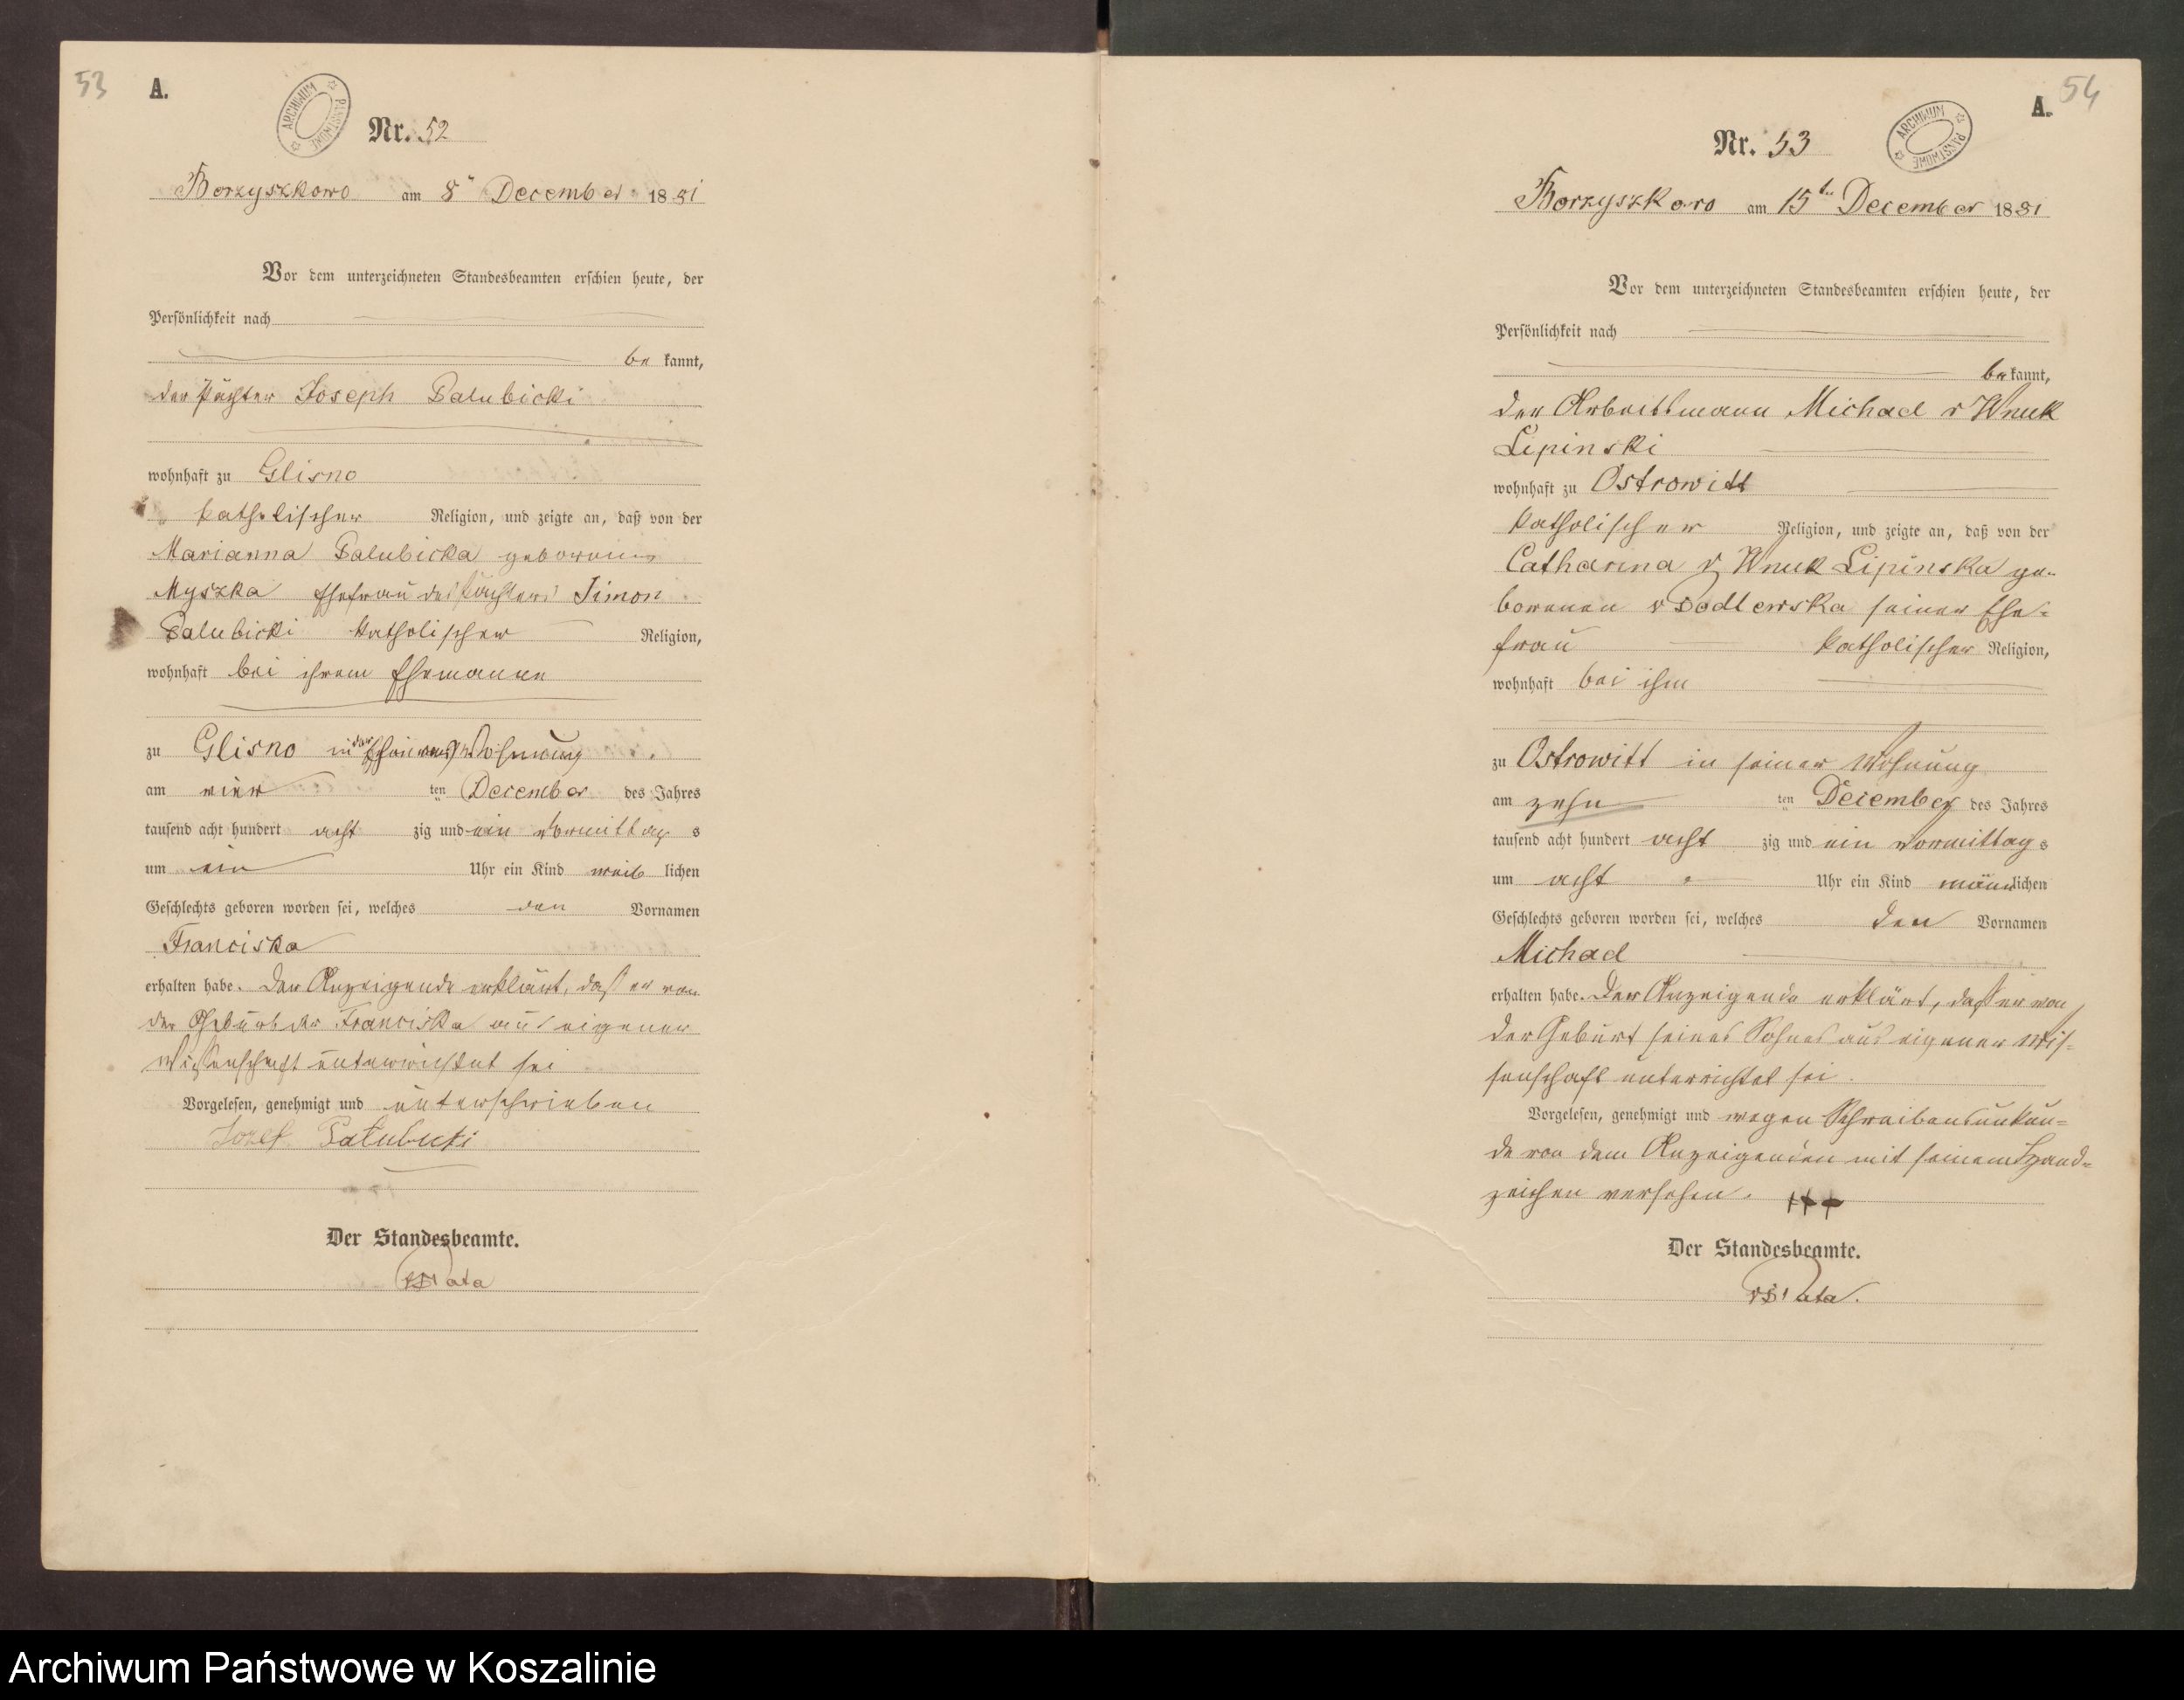 53
A.
ARCHIWUM PAŃSTWOWE
Nr. 52
Borzyszkowo am 8ᵗ December 1881
Vor dem unterzeichneten Standesbeamten erschien heute, der
Persönlichkeit nach
be kannt,
der Pächter Joseph Palubicki
wohnhaft zu Glisno
katholischer Religion, und zeigte an, daß von der
Marianna Palubicka geborenen
Myszka Ehefrau des Pächters Simon
Palubicki katholischer Religion,
wohnhaft bei ihrem Ehemanne
zu Glisno in der Wohnung
am vier ten December des Jahres
tausend acht hundert acht zig und ein Vormittag s
um ein Uhr ein Kind weib lichen
Geschlechts geboren worden sei, welches den Vornamen
Franciska
erhalten habe. Der Anzeigende erklärt, daß er von
der Geburt der Franciska aus eigener
Wissenschaft unterrichtet sei
Vorgelesen, genehmigt und unterschrieben
Jozef Pałubicki
Der Standesbeamte.
54
A.
ARCHIWUM PAŃSTWOWE
Nr. 53
Borzyszkowo am 15ten December 1881
Vor dem unterzeichneten Standesbeamten erschien heute, der
Persönlichkeit nach
be kannt,
der Arbeitsmann Michael v Wnuk
Lipinski
wohnhaft zu Ostrowitt
katholischer Religion, und zeigte an, daß von der
Catharina v Wnuk Lipinska ge-
borenen seiner Ehe-
frau katholischer Religion,
wohnhaft bei ihm
zu Ostrowitt in seiner Wohnung
am zehn ten December des Jahres
tausend acht hundert acht zig und ein Vormittag s
um acht Uhr ein Kind männ lichen
Geschlechts geboren worden sei, welches den Vornamen
Michael
erhalten habe. Der Anzeigende erklärt, daß er von
der Geburt seines Sohnes aus eigener Wis-
senschaft unterrichtet sei.
Vorgelesen, genehmigt und wegen Schreibensunkun-
de von dem Anzeigenden mit seinem Hand-
zeichen versehen. +++
Der Standesbeamte.
Archiwum Państwowe w Koszalinie